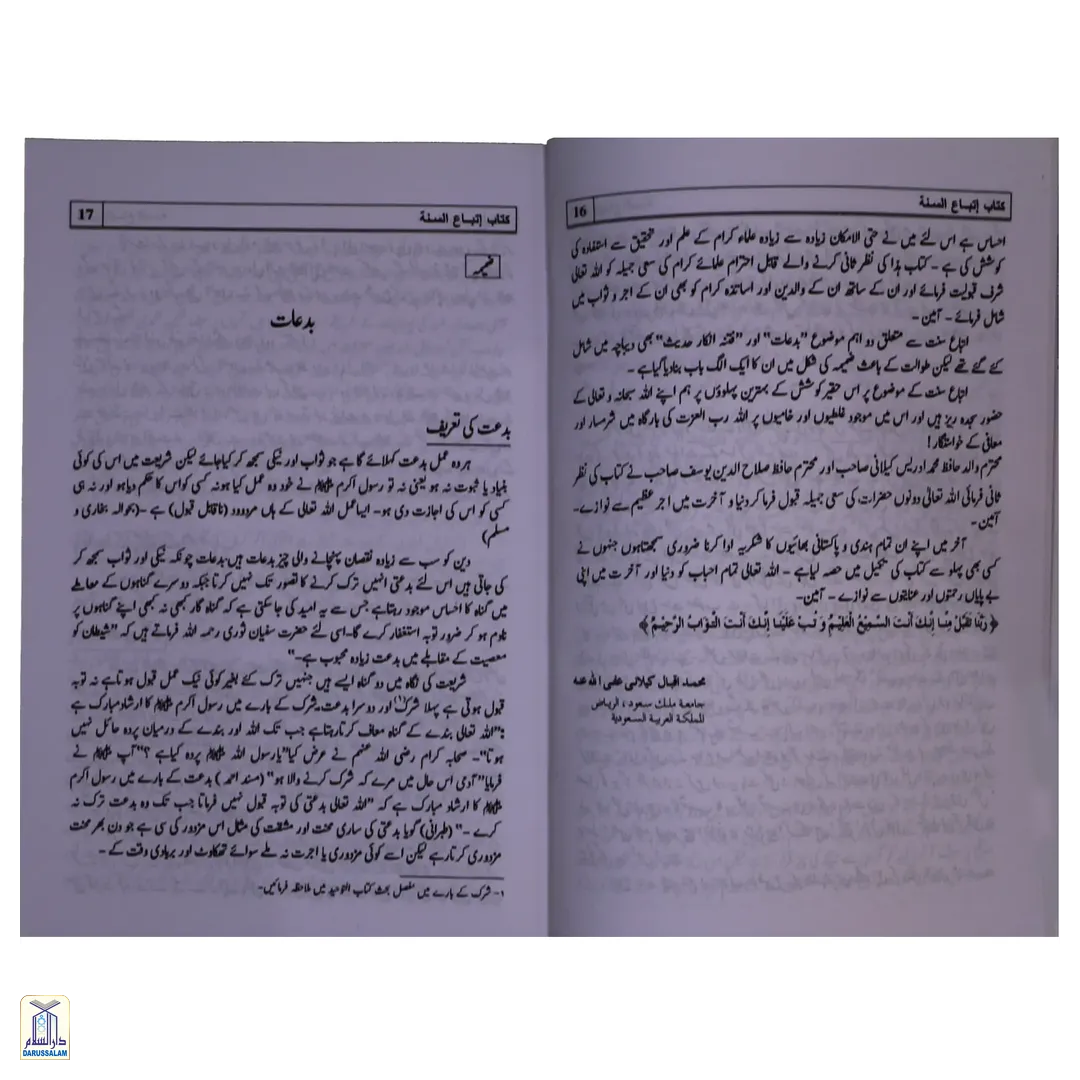 كتاب إتباع السنة
16
احساس ہے اس لئے میں نے حتی الامکان زیادہ سے زیادہ علماء کرام کے علم اور تحقیق سے استفادہ کی
کوشش کی ہے - کتاب ہذا کی نظر ثانی کرنے والے قابل احترام علمائے کرام کی سعی جمیلہ کو اللہ تعالٰی
شرف قبولیت فرمائے اور ان کے ساتھ ان کے والدین اور اساتذہ کرام کو بھی ان کے اجر و ثواب میں
شامل فرمائے - آمین -
اتباع سنت سے متعلق دو اہم موضوع "بدعات" اور "فتنہ انکار حدیث" بھی دیباچہ میں شامل
کئے گئے تھے لیکن طوالت کے باعث ضمیمہ کی شکل میں ان کا ایک الگ باب بنادیا گیا ہے -
اتباع سنت کے موضوع پر اس حقیر کوشش کے بہترین پہلوؤں پر ہم اپنے اللہ سبحانہ و تعالٰی کے
حضور سجدہ ریز ہیں اور اس میں موجود غلطیوں اور خامیوں پر اللہ رب العزت کی بارگاہ میں شرمسار اور
معافی کے خواستگار !
محترم والد حافظ محمد ادریس کیلانی صاحب اور محترم حافظ صلاح الدین یوسف صاحب نے کتاب کی نظر
ثانی فرمائی اللہ تعالٰی دونوں حضرات کی سعی جمیلہ قبول فرما کر دنیا و آخرت میں اجر عظیم سے نوازے-
آمین -
آخر میں اپنے ان تمام ہندی و پاکستانی بھائیوں کا شکریہ ادا کرنا ضروری سمجھتا ہوں جنہوں نے
کسی بھی پہلو سے کتاب کی تکمیل میں حصہ لیا ہے - اللہ تعالٰی تمام احباب کو دنیا اور آخرت میں اپنی
بے پایاں رحمتوں اور عنایتوں سے نوازے - آمین-
﴿ رَبَّنَا تَقَبَّلْ مِنَّا إِنَّكَ أَنْتَ السَّمِيْعُ الْعَلِيْمُ وَ تُبْ عَلَيْنَا إِنَّكَ أَنْتَ التَّوَّابُ الرَّحِيْمُ ﴾
محمد اقبال کیلانی عفی اللہ عنہ
جامعة ملك سعود ، الرياض
المملكة العربية السعودية
كتاب إتباع السنة
17
ضمیمہ
بدعات
بدعت کی تعریف
ہر وہ عمل بدعت کہلائے گا ہے جو ثواب اور نیکی سمجھ کر کیا جائے لیکن شریعت میں اس کی کوئی
بنیاد یا ثبوت نہ ہو یعنی نہ تو رسول اکرم ﷺ نے خود وہ عمل کیا ہو نہ کسی کو اس کا حکم دیا ہو اور نہ ہی
کسی کو اس کی اجازت دی ہو- ایسا عمل اللہ تعالٰی کے ہاں مردود (ناقابل قبول) ہے -(بحوالہ بخاری و
مسلم)
دین کو سب سے زیادہ نقصان پہنچانے والی چیز بدعات ہیں بدعات چونکہ نیکی اور ثواب سمجھ کر
کی جاتی ہیں اس لئے بدعتی انہیں ترک کرنے کا تصور تک نہیں کرتا جبکہ دوسرے گناہوں کے معاملے
میں گناہ کا احساس موجود رہتا ہے جس سے یہ امید کی جاسکتی ہے کہ گناہ گار کبھی نہ کبھی اپنے گناہوں پر
نادم ہو کر ضرور توبہ استغفار کرے گا-اسی لئے حضرت سفیان ثوری رحمہ اللہ فرماتے ہیں کہ "شیطان کو
معصیت کے مقابلے میں بدعت زیادہ محبوب ہے-"
شریعت کی نگاہ میں دو گناہ ایسے ہیں جنہیں ترک کئے بغیر کوئی نیک عمل قبول ہوتا ہے نہ توبہ
قبول ہوتی ہے پہلا شرک۱ اور دوسرا بدعت-شرک کے بارے میں رسول اکرم ﷺ کا ارشاد مبارک ہے
:"اللہ تعالٰی بندے کے گناہ معاف کرتا رہتا ہے جب تک اللہ اور بندے کے درمیان پردہ حائل نہیں
ہوتا"- صحابہ کرام رضی اللہ عنہم نے عرض کیا "یا رسول اللہ ﷺ پردہ کیا ہے ؟" آپ ﷺ نے
فرمایا "آدمی اس حال میں مرے کہ شرک کرنے والا ہو" (مسند احمد ) بدعت کے بارے میں رسول اکرم
ﷺ کا ارشاد مبارک ہے کہ "اللہ تعالٰی بدعتی کی توبہ قبول نہیں فرماتا جب تک وہ بدعت ترک نہ
کرے -" (طبرانی) گویا بدعتی کی ساری محنت اور مشقت کی مثال اس مزدور کی سی ہے جو دن بھر محنت
مزدوری کرتا رہے لیکن اسے کوئی مزدوری یا اجرت نہ ملے سوائے تھکاوٹ اور بربادی وقت کے -
۱- شرک کے بارے میں مفصل بحث کتاب التوحید میں ملاحظہ فرمائیں-
دار السلام
DARUSSALAM